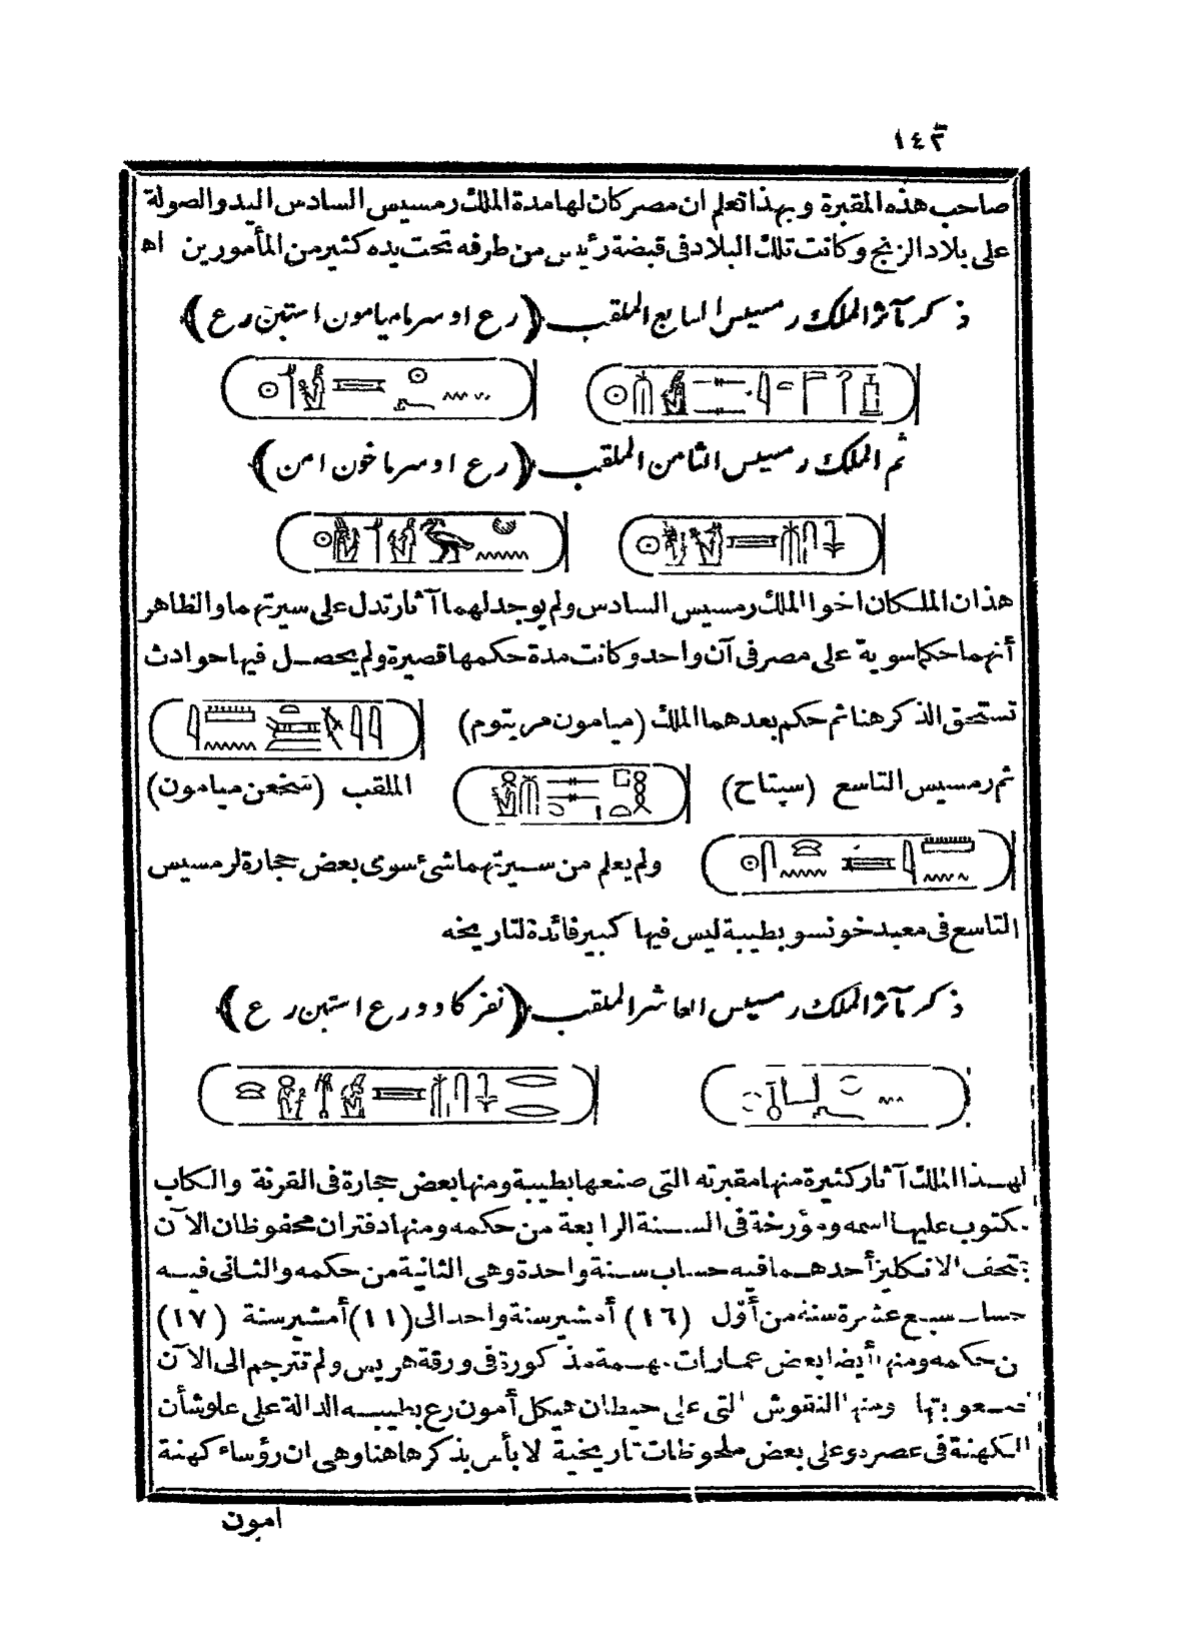 ١٤٣
صاحب هذه المقبرة وبهذا تعلم ان مصر كان لها مدة الملك رمسيس السادس اليد والصولة
على بلاد الزنج وكانت تلك البلاد فى قبضة رئيس من طرفه تحت يده كثير من المأمورين اه
ذكر مآثر الملك رمسيس السابع الملقب (رع اوسرماميامون استبن رع)
ثم الملك رمسيس الثامن الملقب (رع اوسرماخون امن)
هذان الملكان اخوا الملك رمسيس السادس ولم يوجد لهما آثار تدل على سيرتهما والظاهر
أنهما حكما سوية على مصر فى آن واحد وكانت مدة حكمها قصيرة ولم يحصل فيها حوادث
تستحق الذكر هنا ثم حكم بعدهما الملك (ميامون مريتوم)
ثم رمسيس التاسع (سپتاح) الملقب (سخعن ميامون)
ولم يعلم من سيرتهما شئ سوى بعض حجارة لرمسيس
التاسع فى معبد خونسو بطيبة ليس فيها كبير فائدة لتاريخه
ذكر مآثر الملك رمسيس العاشر الملقب (نفر كاوورع استبن رع)
لهذا الملك آثار كثيرة منها مقبرته التى صنعها بطيبة ومنها بعض حجارة فى القرنة والكاب
مكتوب عليها اسمه ومؤرخة فى السنة الرابعة من حكمه ومنها دفتران محفوظان الآن
بتحف الانكليز أحدهما فيه حساب سنة واحدة وهى الثانية من حكمه والثانى فيه
حساب سبع عشرة سنة من أوّل (١٦) أمشير سنة واحد الى (١١) أمشير سنة (١٧)
من حكمه ومنها أيضا بعض عمارات مهمة مذكورة فى ورقة هريس ولم تترجم الى الآن
لصعوبتها ومنها النقوش التى على حيطان هيكل أمون رع بطيبه الدالة على علو شأن
الكهنة فى عصره وعلى بعض ملحوظات تاريخية لا بأس بذكرها هنا وهى ان رؤساء كهنة
امون